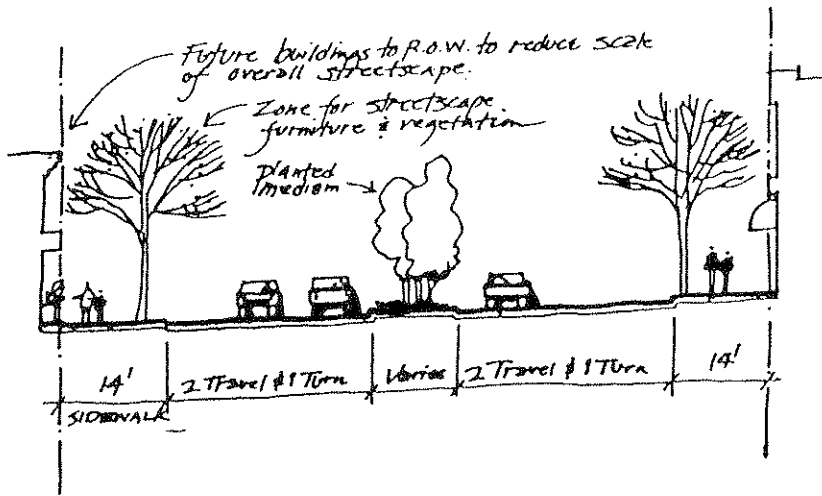 Future buildings to R.O.W. to reduce scale
of overall streetscape.
Zone for streetscape
furniture & vegetation
Planted
median
14'
2 Travel & 1 Turn
Varies
2 Travel & 1 Turn
14'
SIDEWALK